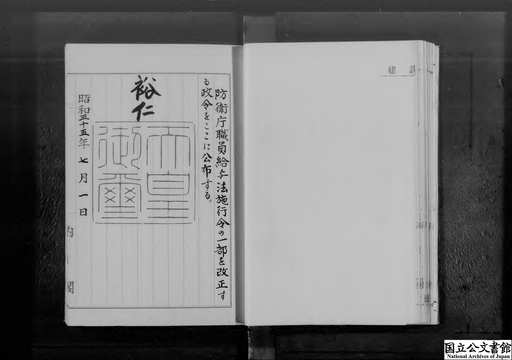 防衛庁職員給与法施行令の一部を改正す
る政令をここに公布する。
裕仁
天皇
御璽
昭和三十五年七月一日
内閣
国立公文書館
National Archives of Japan